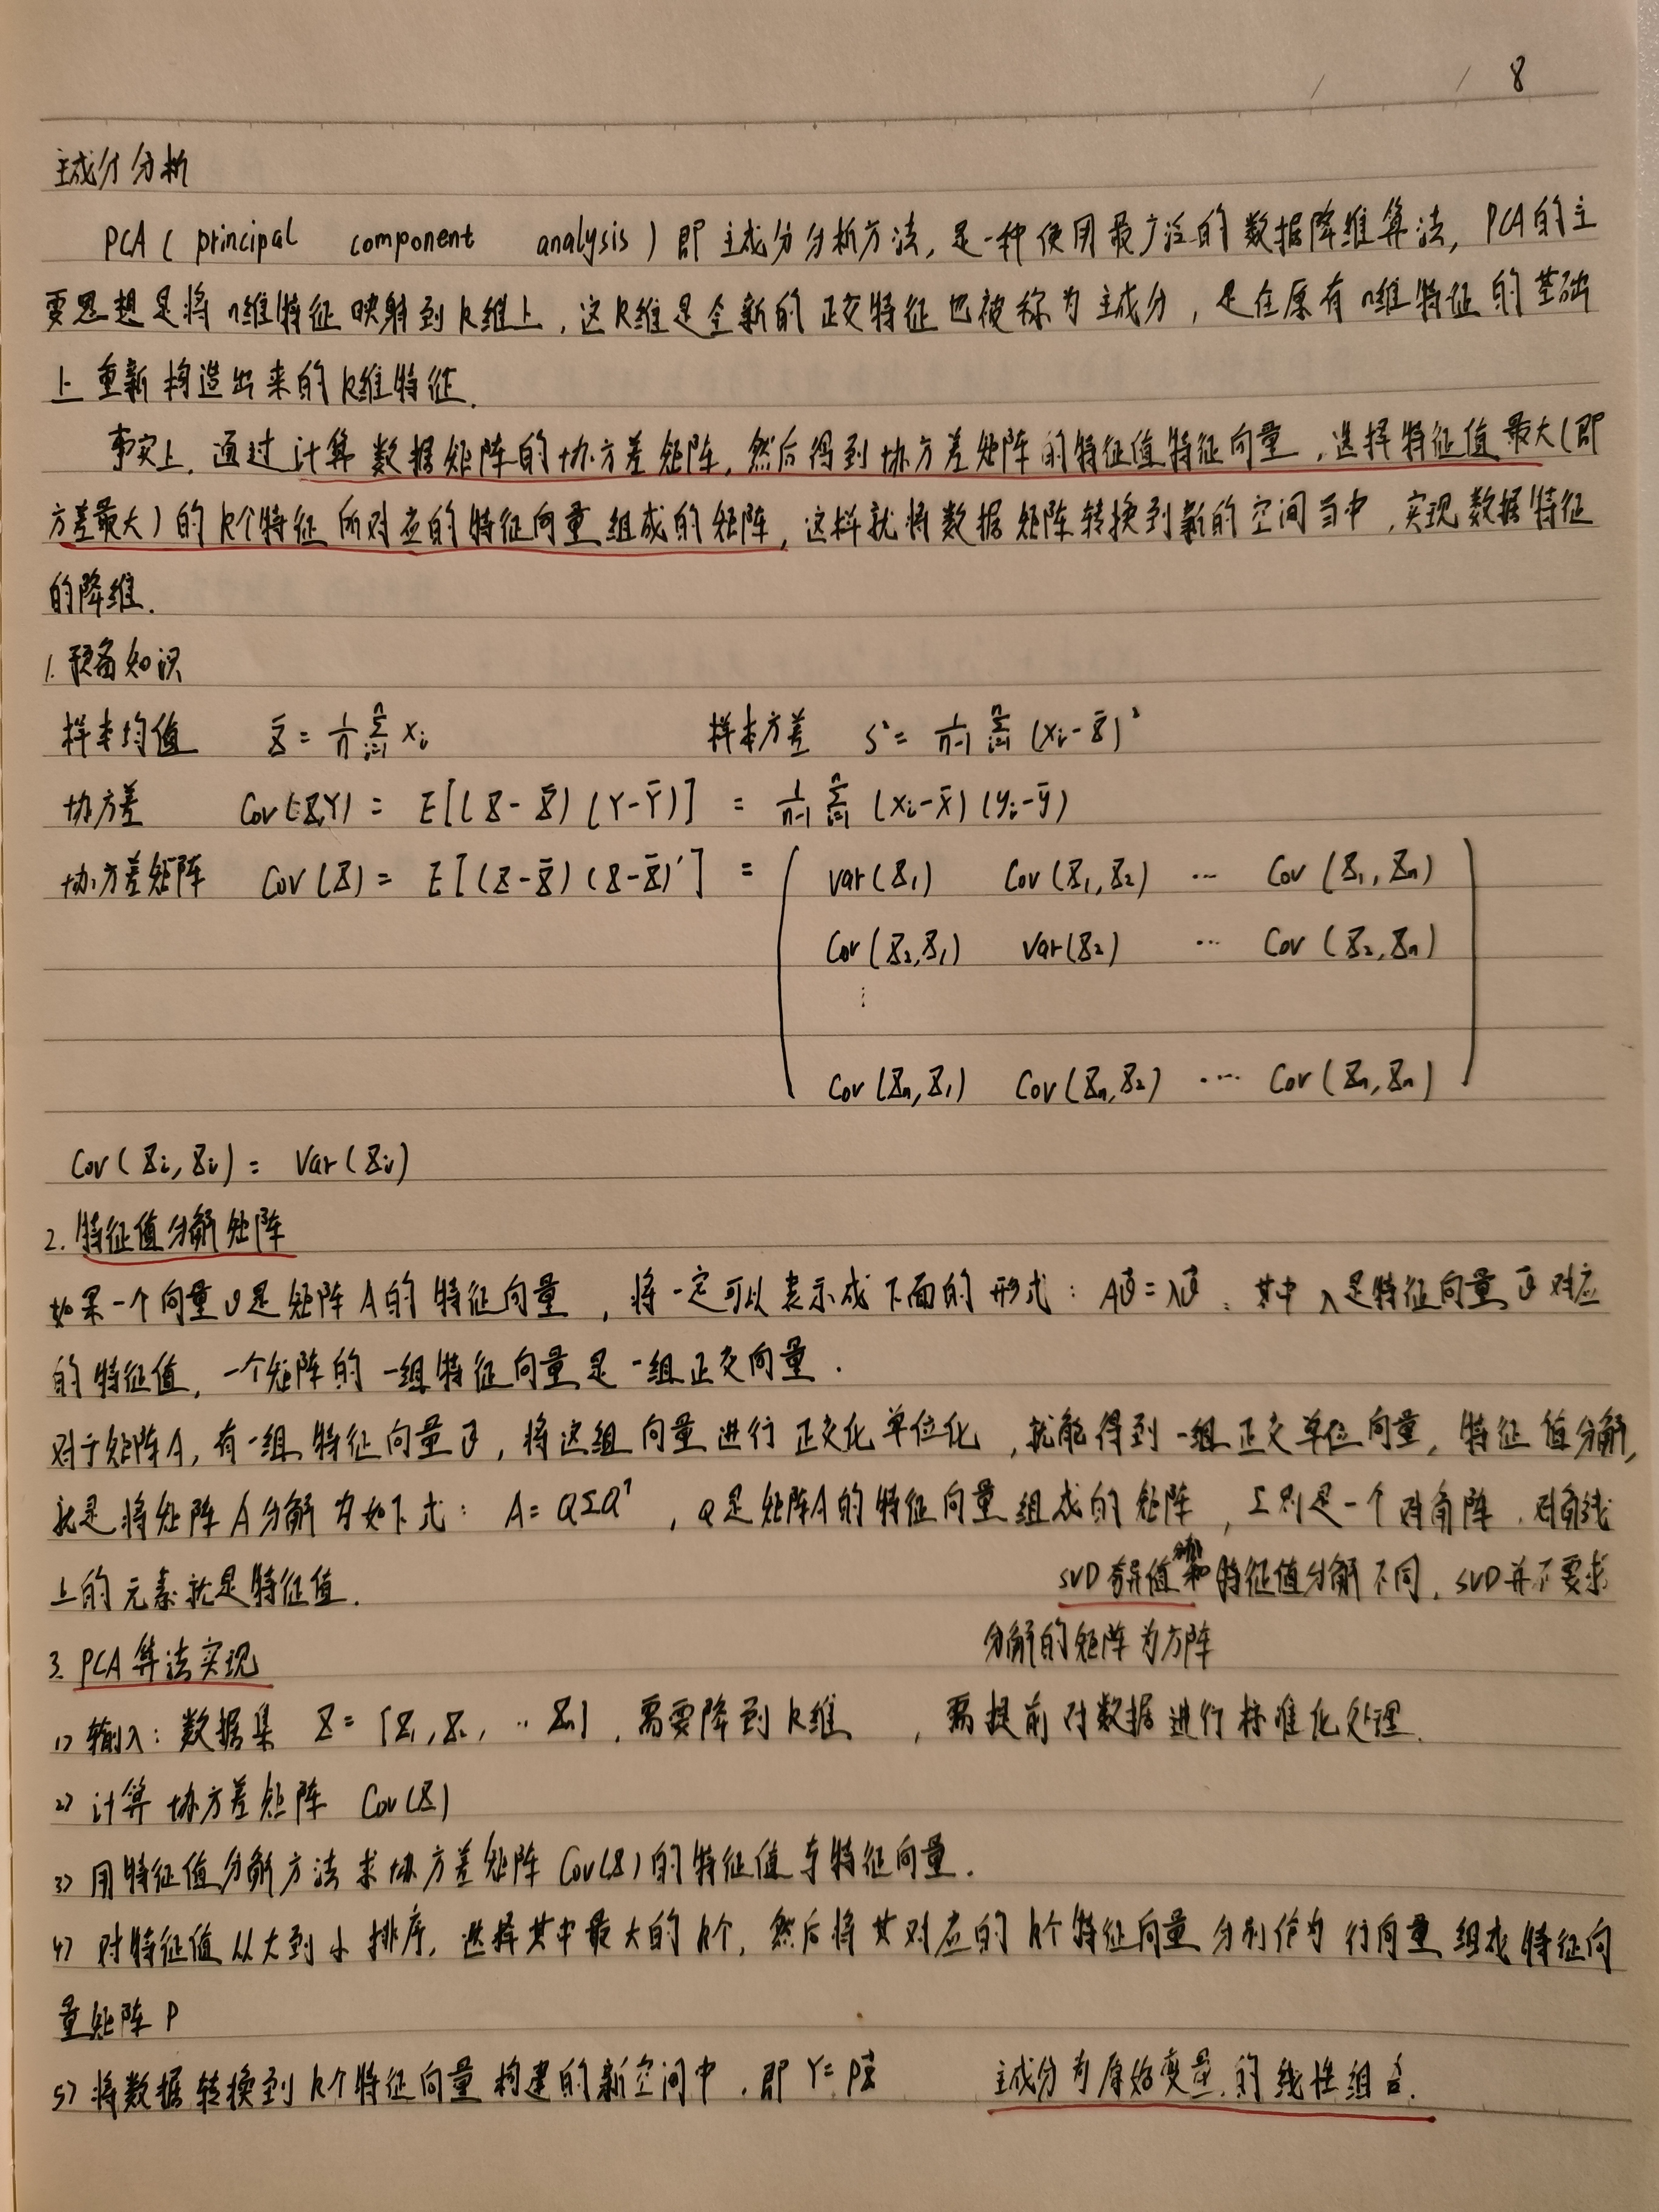 8
主成分分析
PCA ( principal component analysis ) 即主成分分析方法, 是一种使用最广泛的数据降维算法, PCA的主
要思想是将n维特征映射到k维上, 这k维是全新的正交特征也被称为主成分, 是在原有n维特征的基础
上重新构造出来的k维特征.
事实上, 通过计算数据矩阵的协方差矩阵, 然后得到协方差矩阵的特征值特征向量, 选择特征值最大(即
方差最大)的k个特征所对应的特征向量组成的矩阵, 这样就将数据矩阵转换到新的空间当中, 实现数据特征
的降维.
1. 预备知识
样本均值 X̄ = 1/n Σ_{i=1}^{n} x_i 样本方差 S² = 1/(n-1) Σ_{i=1}^{n} (x_i - X̄)²
协方差 Cov(X,Y) = E[(X-X̄)(Y-Ȳ)] = 1/(n-1) Σ_{i=1}^{n} (x_i-x̄)(y_i-ȳ)
协方差矩阵 Cov(X) = E[(X-X̄)(X-X̄)'] = ( Var(X₁) Cov(X₁,X₂) … Cov(X₁,Xn)
Cov(X₂,X₁) Var(X₂) … Cov(X₂,Xn)
⋮
Cov(Xn,X₁) Cov(Xn,X₂) … Cov(Xn,Xn) )
Cov(Xi,Xi) = Var(Xi)
2. 特征值分解矩阵
如果一个向量v是矩阵A的特征向量, 将一定可以表示成下面的形式: Av⃗=λv⃗. 其中λ是特征向量v⃗对应
的特征值, 一个矩阵的一组特征向量是一组正交向量.
对于矩阵A, 有一组特征向量v⃗, 将这组向量进行正交化单位化, 就能得到一组正交单位向量, 特征值分解,
就是将矩阵A分解为如下式: A=QΣQ⁻¹, Q是矩阵A的特征向量组成的矩阵, Σ则是一个对角阵, 对角线
上的元素就是特征值. SVD奇异值分解和特征值分解不同, SVD并不要求
分解的矩阵为方阵
3. PCA算法实现
1) 输入: 数据集 X = [X₁, X₂, … Xn], 需要降到k维, 需提前对数据进行标准化处理.
2) 计算协方差矩阵 Cov(X)
3) 用特征值分解方法求协方差矩阵Cov(X)的特征值与特征向量.
4) 对特征值从大到小排序, 选择其中最大的k个, 然后将其对应的k个特征向量分别作为行向量组成特征向
量矩阵P
5) 将数据转换到k个特征向量构建的新空间中, 即Y=PX 主成分为原始变量的线性组合.